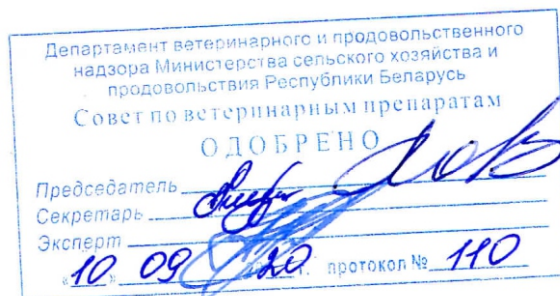 Департамент ветеринарного и продовольственного
надзора Министерства сельского хозяйства и
продовольствия Республики Беларусь
Совет по ветеринарным препаратам
ОДОБРЕНО
Председатель
Секретарь
Эксперт
«10» 09 20 г. протокол № 110